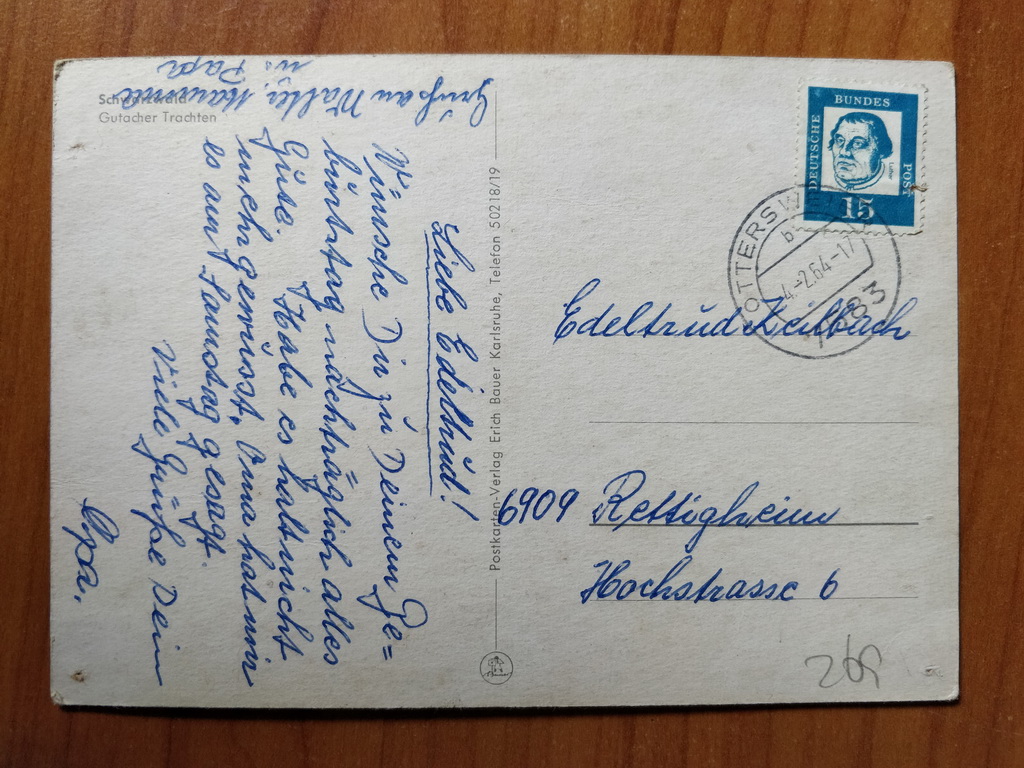 Schwarzwald
Gutacher Trachten
Liebe Edeltrud!
Wünsche Dir zu Deinem Ge=
burtstag nachträglich alles
Gute. Habe es halt nicht
mehr gewusst, Oma hat mir
es am Samstag gesagt.
Viele Grüße Dein
Opa.
Gruß an Walter, Mama
u. Papa
Postkarten-Verlag Erich Bauer Karlsruhe, Telefon 50218/19
DEUTSCHE
BUNDES
POST
Luther
15
b
4.-2.64-17
Edeltrud Zeilbach
6909 Rettigheim
Hochstrasse 6
269